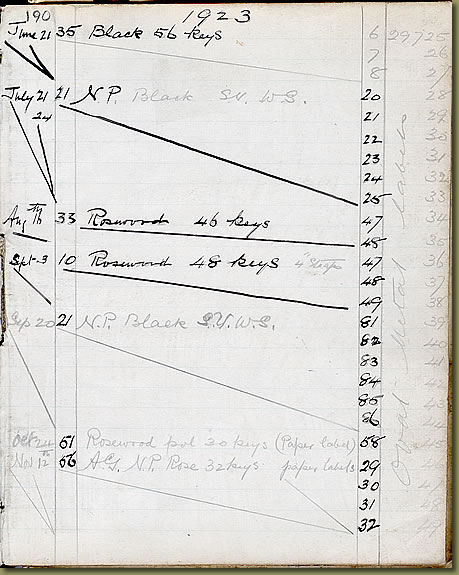 190 1923
June 21 35 Black 56 keys 6 29725
7 26
8 27
July 21 21 N.P. Black S.V. W.S. 20 28
24 21 29
22 30
23 31
24 32
25 33
Aug 16th 33 Rosewood 46 keys 47 34
48 35
Sept. 3 10 Rosewood 48 keys 4" Straps 47 36
48 37
49 38
Sep 20 21 N.P. Black S.V. W.S. 81 39
82 40
83 41
84 42
85
86
Oct 24 51 Rosewood pol 30 keys (Paper label) 58
Nov 12th 56 AG. N.P. Rose 32 keys. paper labels 29
30
31
32
Oval Metal Labels